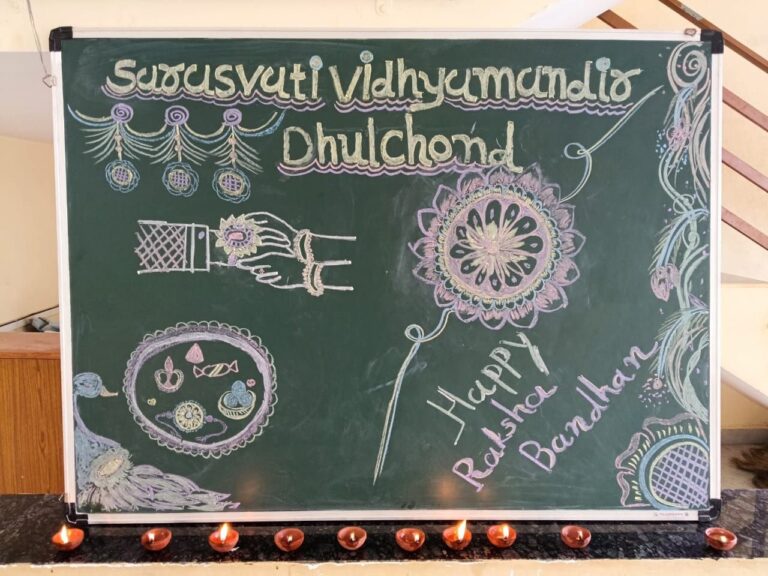 Sarasvati Vidhyamandir
Dhulchond
Happy
Raksha
Bandhan